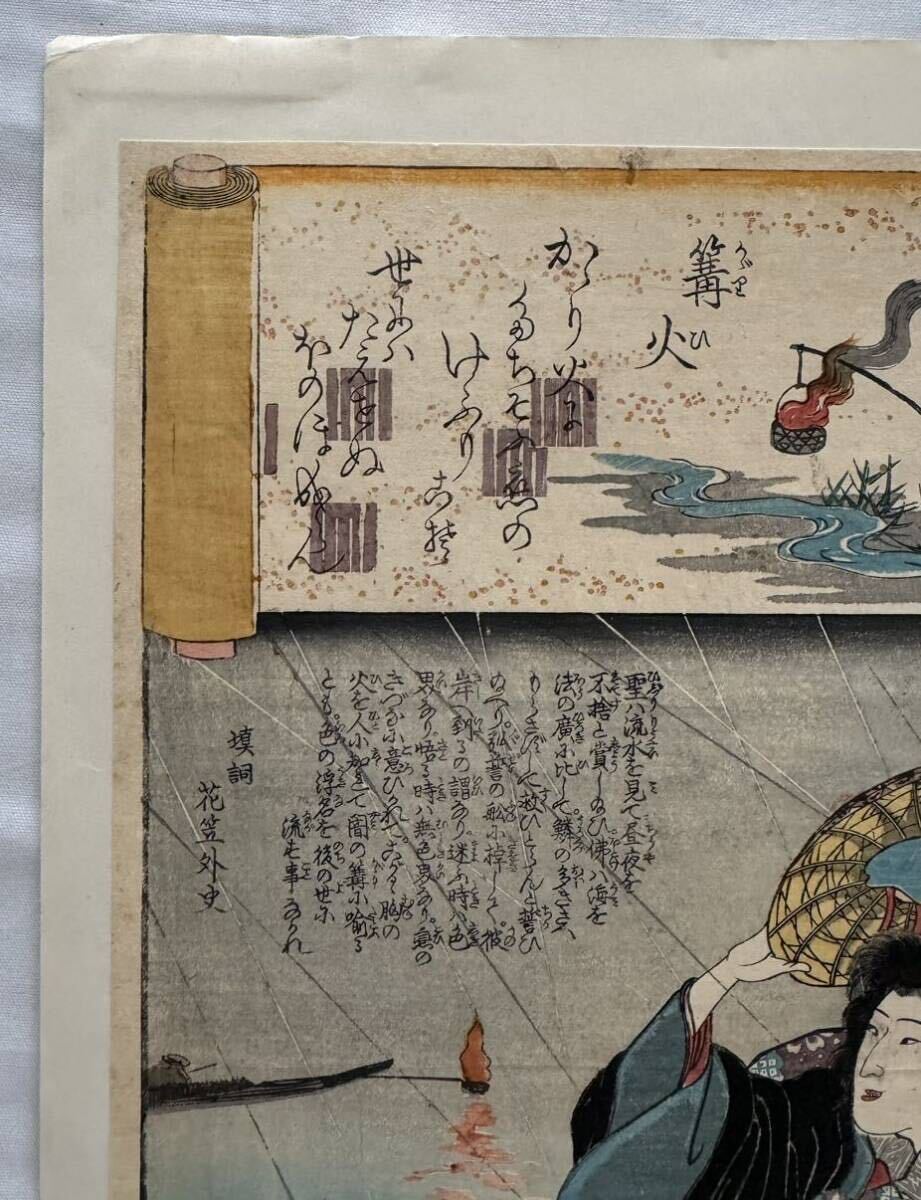 篝火
かゞり ひ
かゝり火に
たちそふ恋の
けふり
こそ
世には
たえせぬ
ほのほなりけれ
聖ハ流水を見て昼夜を
不捨と賞し給ひ佛ハ海を
法の廣に比して鱗の多きさへ
もらさずして救ひとらんと誓ひ
給へり弘誓の舩に棹して彼
岸へ到るの謂あり迷ふ時ハ色
男あり悟る時ハ無色男あり意の
きづなに意ひかれてこがす胸の
火を人に知れて闇の篝に喩る
とも色の浮名を後の世に
流す事なかれ
填詞
花笠外史